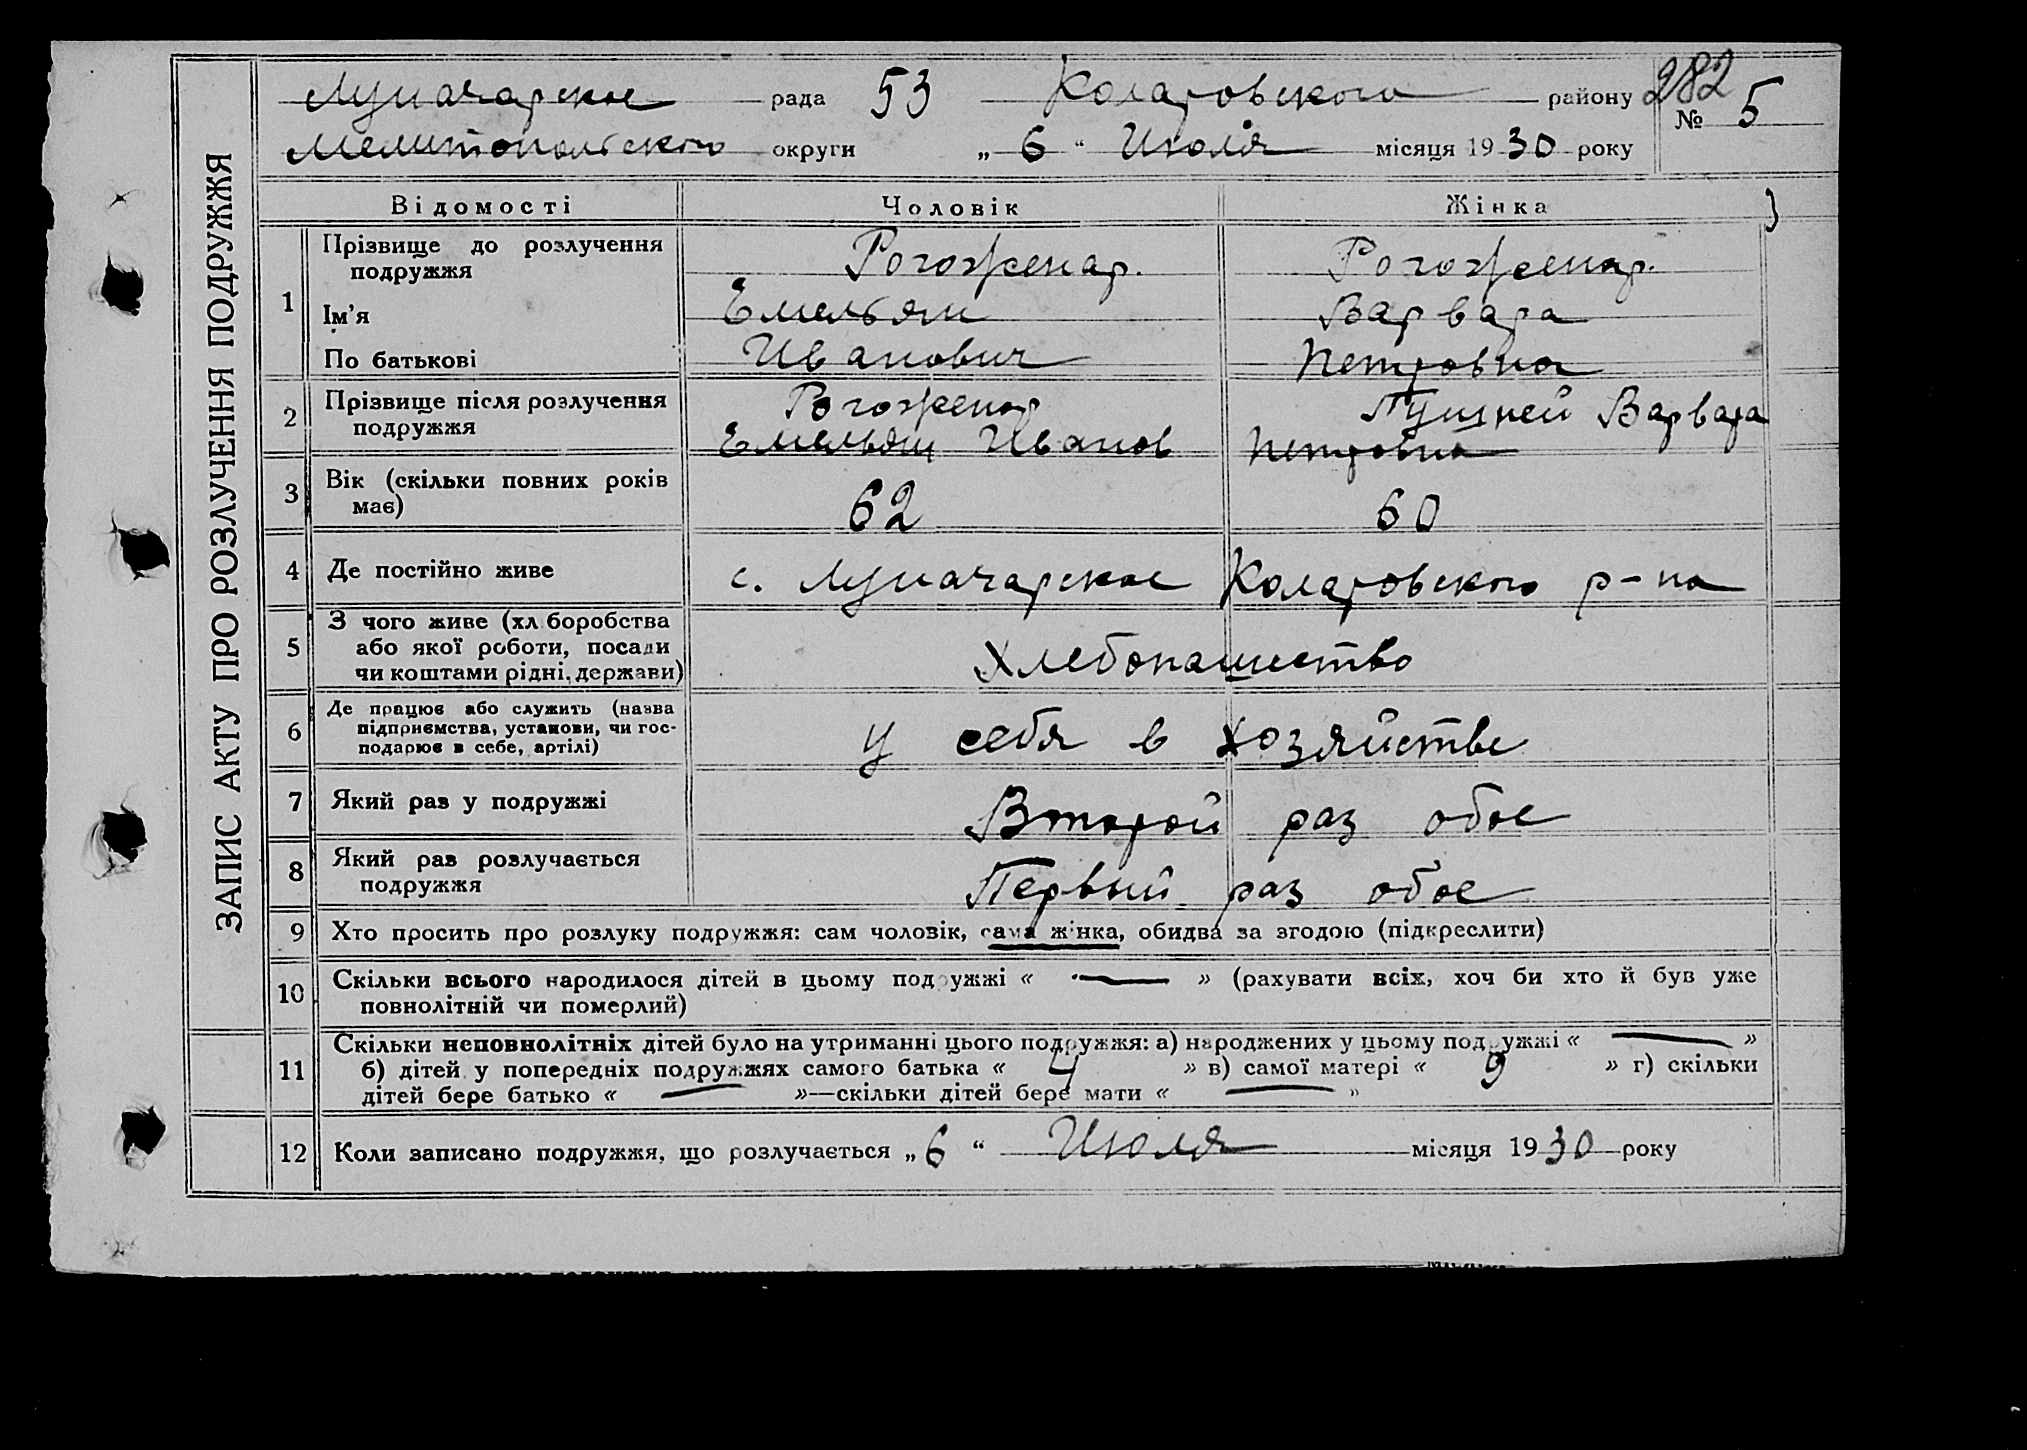 ЗАПИС АКТУ ПРО РОЗЛУЧЕННЯ ПОДРУЖЖЯ
Луначарское рада 53 Коларовского району 282
№ 5
Мелитопольского округи „ 6 “ Июля місяця 1930 року
Відомості Чоловік Жінка
1 Прізвище до розлучення подружжя Рогоженар. Рогоженар.
Ім'я Емельян Варвара
По батькові Иванович Петровна
2 Прізвище після розлучення Рогоженар Пушней Варвара
подружжя Емельян Иванов Петровна
3 Вік (скільки повних років
має) 62 60
4 Де постійно живе с. Луначарское Коларовского р-на
5 З чого живе (хл.боробства
або якої роботи, посади
чи коштами рідні, держави) Хлебопашество
6 Де працює або служить (назва
підприємства, установи, чи гос-
подарює в себе, артілі) у себя в хозяйстве
7 Який раз у подружжі Второй раз обое
8 Який раз розлучається
подружжя Первый раз обое
9 Хто просить про розлуку подружжя: сам чоловік, сама жінка, обидва за згодою (підкреслити)
10 Скільки всього народилося дітей в цьому подружжі « — » (рахувати всіх, хоч би хто й був уже
повнолітній чи померлий)
11 Скільки неповнолітніх дітей було на утриманні цього подружжя: а) народжених у цьому подружжі « — »
б) дітей у попередніх подружжях самого батька « 4 » в) самої матері « 9 » г) скільки
дітей бере батько « — »—скільки дітей бере мати « — »
12 Коли записано подружжя, що розлучається „ 6 “ Июля місяця 1930 року